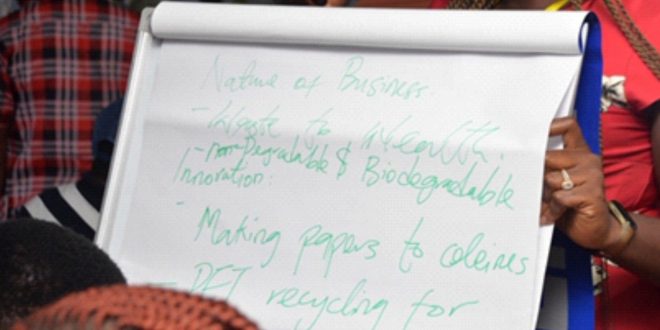 Nature of Business
- Waste to Wealth.
- non Degradable & Biodegradable
Innovation:
- Making papers to
- PET recycling for